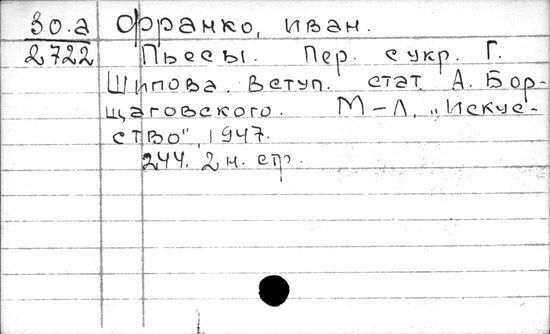 30.а Франко, Иван.
2722 Пьесы. Пер. с укр. Г.
Шипова. Вступ. стат. А. Бор-
щаговского. М-Л, "Искус-
ство", 1947.
244. 2 н. стр.